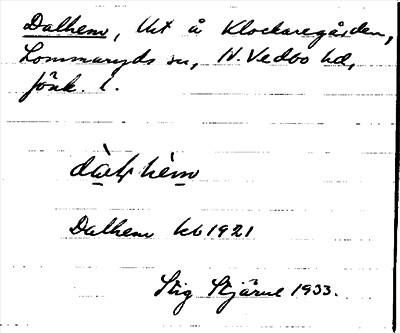 Dalhem, lht å Klockaregården,
Lommaryds sn, N. Vedbo hd,
Jönk. l.
Dalhem kb 1921
Stig Stjärne 1933.